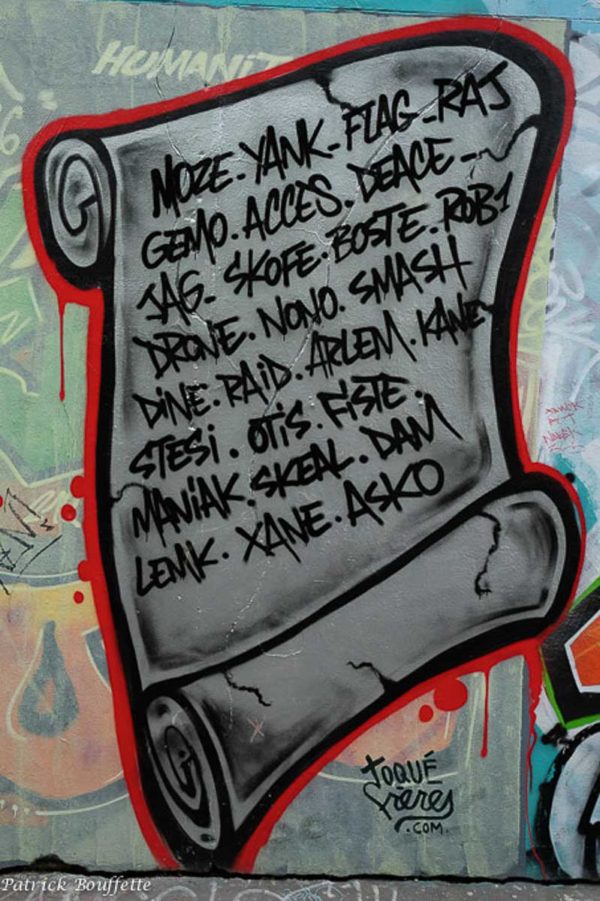 HUMANIT
MOZE. YANK_ FLAG_RAJ
GEMO. ACCÈS. DEACE_
JAG_ SKOFE. BOSTE. ROB1
DRONE. NONO. SMASH
DINE. RAID. ARLEM. KANE
STESI. OTIS. FISTE.
MANIAK. SKEAL. DAM
LEMK. XANE. ASKO
TOQUÉ
Frères
.COM.
Patrick Bouffette